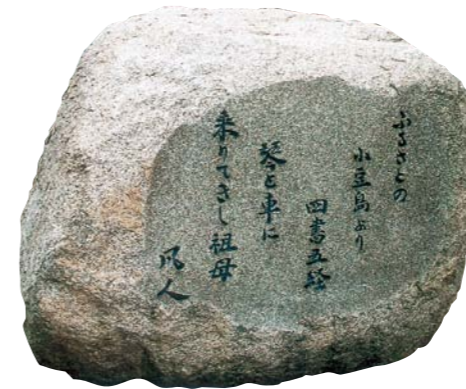 ふるさとの
小豆島より
四書五経
琴と車に
乗りてきし祖母
凡人